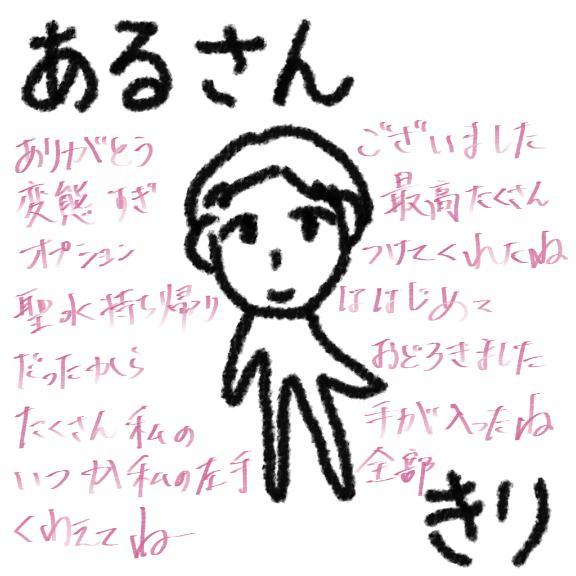 あるさん
ありがとう ございました
変態すぎ 最高たくさん
オプション つけてくれたね
聖水持ち帰り ははじめて
だったから おどろきました
たくさん私の 手が入ったね
いつか私の左手 全部
くわえてねー
きり